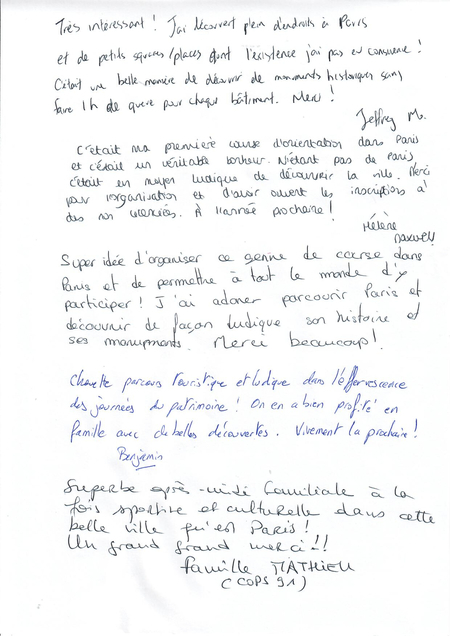 Très intéressant ! J'ai découvert plein d'endroits à Paris
et de petits squares/places dont l'existence j'ai pas eu conscience !
C'était une belle manière de découvrir de monuments historiques sans
faire 1h de queue pour chaque bâtiment. Merci !
Jeffrey M.
C'était ma première course d'orientation dans Paris
et c'était un véritable bonheur. N'étant pas de Paris
c'était un moyen ludique de découvrir la ville. Merci
pour l'organisation et d'avoir ouvert les inscriptions à
des non licenciés. À l'année prochaine !
Hélène
Super idée d'organiser ce genre de course dans
Paris et de permettre à tout le monde d'y
participer ! J'ai adorer parcourir Paris et
découvrir de façon ludique son histoire et
ses monuments. Merci beaucoup !
Chouette parcours touristique et ludique dans l'effervescence
des journées du patrimoine ! On en a bien profité en
famille avec de belles découvertes. Vivement la prochaine !
Benjamin
Superbe après-midi familiale à la
fois sportive et culturelle dans cette
belle ville qu'est Paris !
Un grand grand merci !!
famille MATHIEU
(COPS 91)